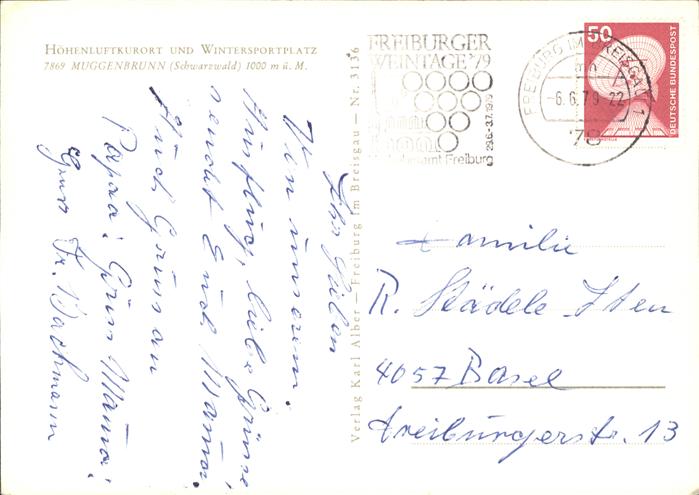 HÖHENLUFTKURORT UND WINTERSPORTPLATZ
7869 MUGGENBRUNN (Schwarzwald) 1000 m ü. M.
Ihr Lieben
Von unserem
Ausflug, liebe Grüsse
sendet Euch Mama.
Auch Gruss an
Papa: Gruss Mama:
Gruss Fr. Bachmann
Verlag Karl Alber — Freiburg im Breisgau — Nr. 3136
FREIBURGER
WEINTAGE '79
29.6.-3.7.1979
Freiburg
FREIBURG IM BREISGAU 1
mh
-6.6.79-22
78
50
DEUTSCHE BUNDESPOST
Familie
R. Städele Iten
4057 Basel
Freiburgerstr. 13